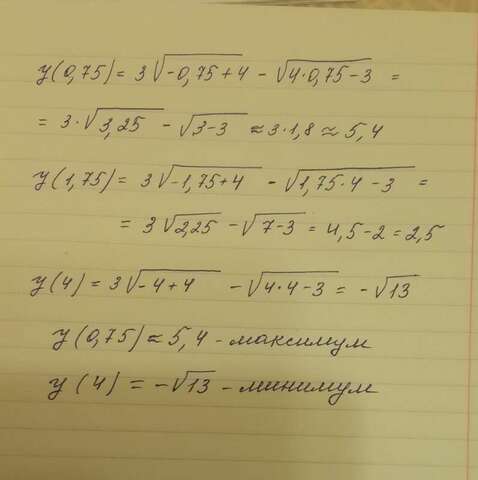 y(0,75) = 3√(-0,75+4) - √(4·0,75-3) =
= 3·√3,25 - √(3-3) ≈ 3·1,8 ≈ 5,4
y(1,75) = 3√(-1,75+4) - √(1,75·4-3) =
= 3√2,25 - √(7-3) = 4,5-2 = 2,5
y(4) = 3√(-4+4) - √(4·4-3) = -√13
y(0,75) ≈ 5,4 - максимум
y(4) = -√13 - минимум